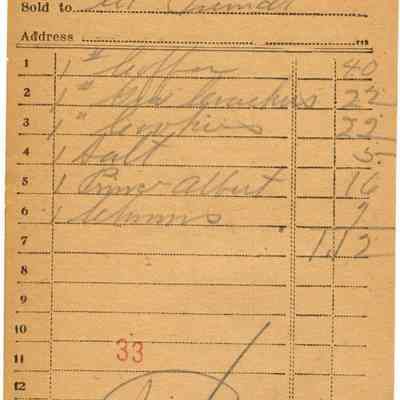 Sold to
Address
1 1 " Coffee 40
2 1 " Crackers 22
3 1 " Cookies 22
4 1 Salt 5
5 1 Prince Albert 16
6 1 7
7 1.12
8
9
10
11 33
12